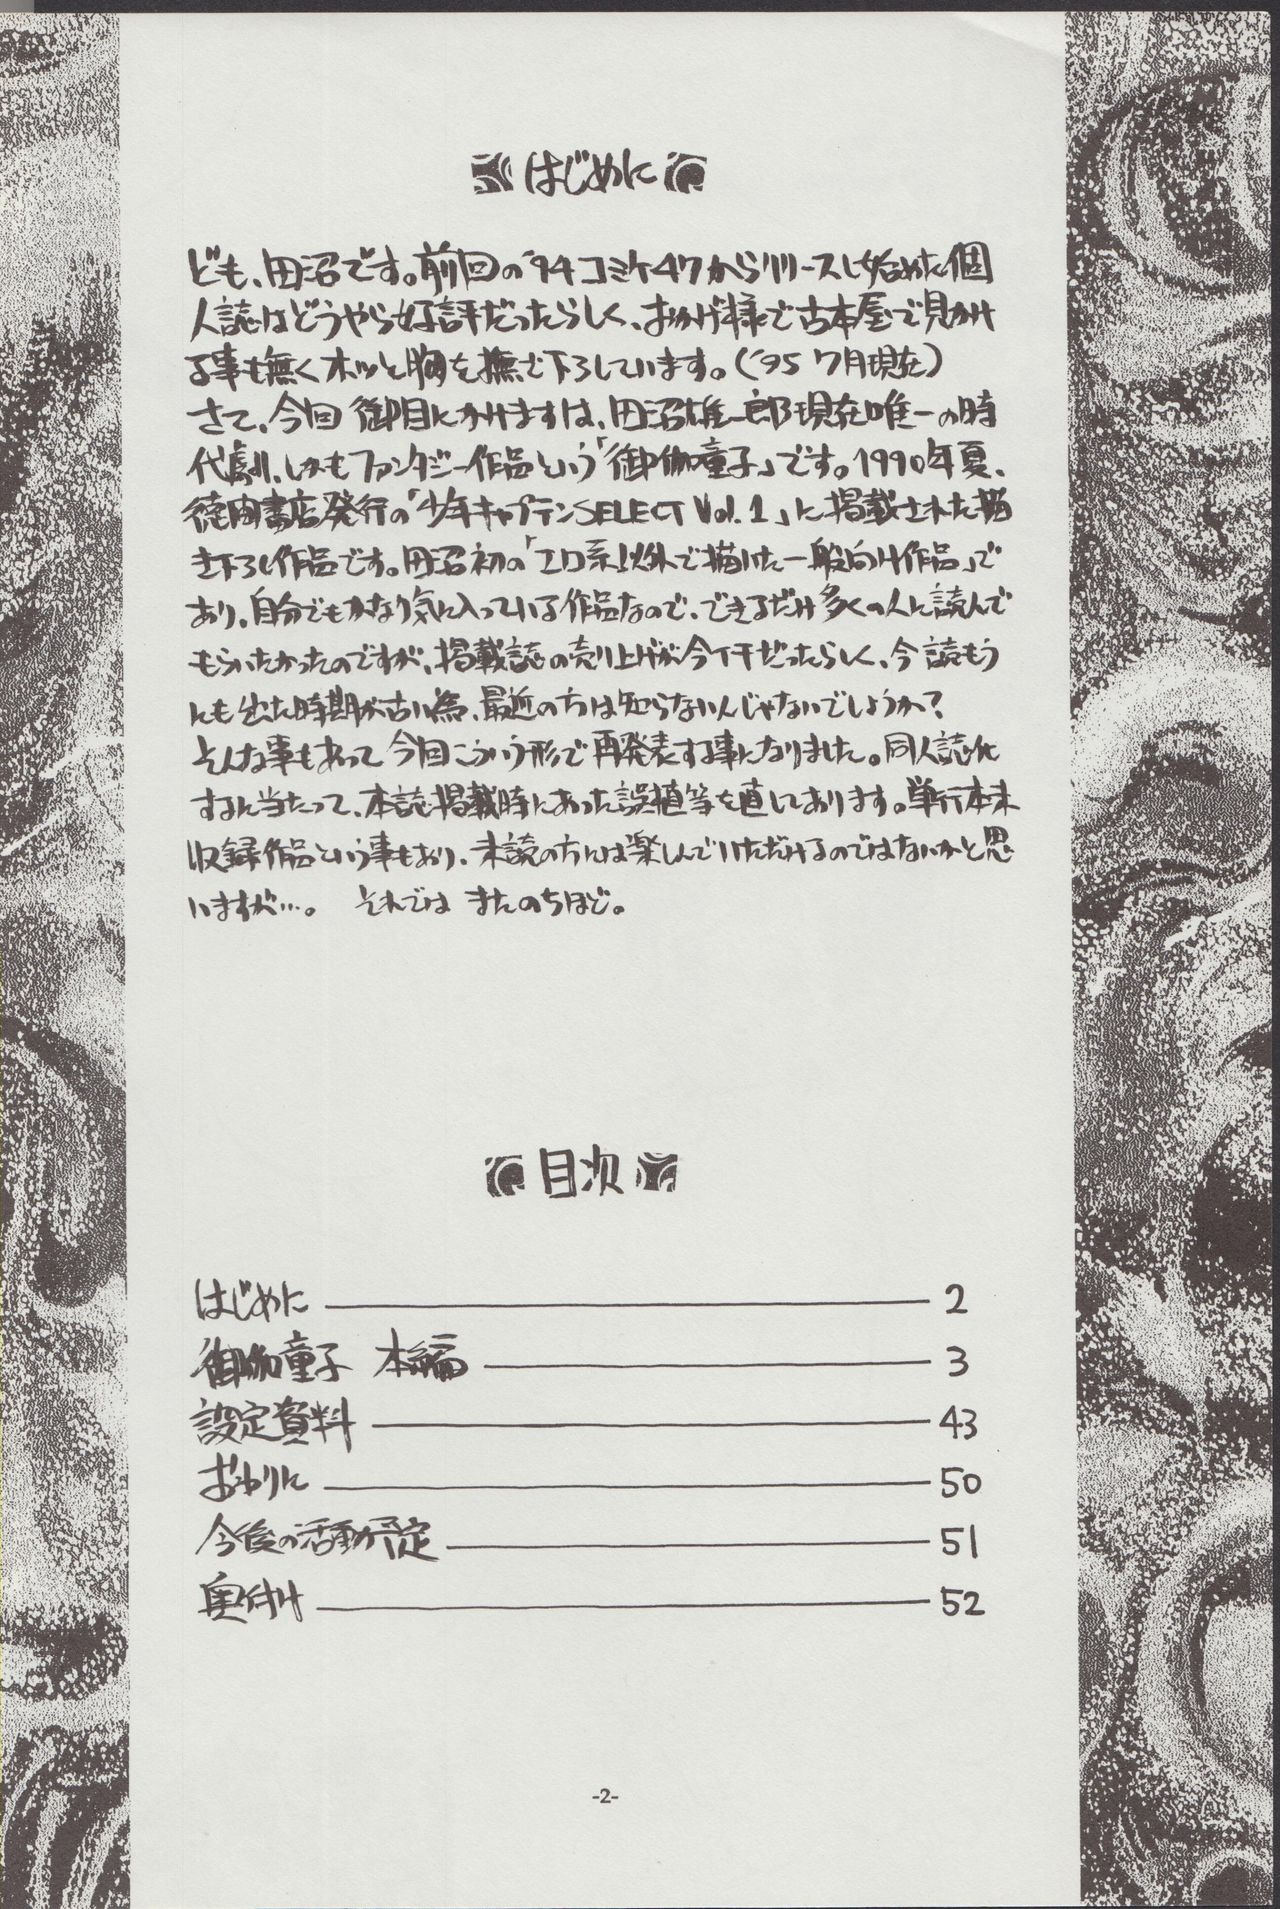 はじめに
ども、田沼です。前回の'94コミケ47からリリースし始めた個
人誌はどうやら好評だったらしく、おかげ様で古本屋で見かけ
る事も無くホッと胸を撫で下ろしています。('95 7月現在)
さて、今回御目にかけますは、田沼雄一郎現在唯一の時
代劇、しかもファンタジー作品という「御伽童子」です。1990年夏、
徳間書店発行の「少年キャプテンSELECT Vol.1」に掲載された描
き下ろし作品です。田沼初の「エロ系以外で描けた一般向け作品」で
あり、自分でもかなり気に入っている作品なので、できるだけ多くの人に読んで
もらいたかったのですが、掲載誌の売り上げが今イチだったらしく、今読もう
にも出た時期が古い為、最近の方は知らない人じゃないでしょうか?
そんな事もあって今回こういう形で再発表する事になりました。同人誌化
するに当たって、本誌掲載時にあった誤植等を直してあります。単行本未
収録作品という事もあり、未読の方には楽しんでいただけるのではないかと思
いますが…。 それではまたのちほど。
目次
はじめに 2
御伽童子 本編 3
設定資料 43
おわりに 50
今後の活動予定 51
奥付け 52
-2-